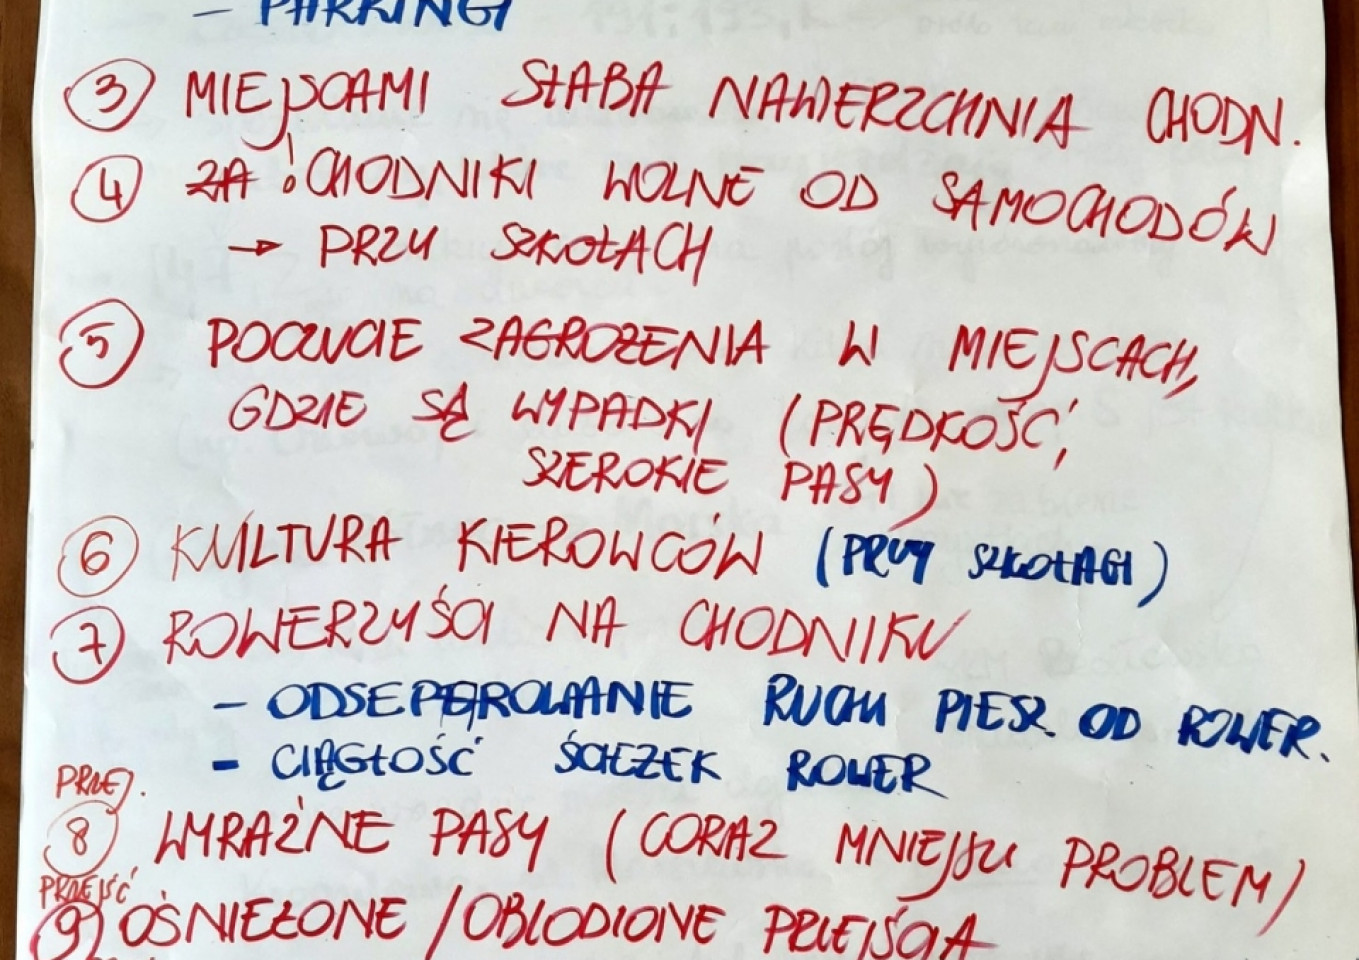 - PARKINGI
③ MIEJSCAMI SŁABA NAWIERZCHNIA CHODN.
④ ZA ! CHODNIKI WOLNE OD SAMOCHODÓW
→ PRZY SZKOŁACH
⑤ POCZUCIE ZAGROŻENIA W MIEJSCACH,
GDZIE SĄ WYPADKI (PRĘDKOŚĆ,
SZEROKIE PASY)
⑥ KULTURA KIEROWCÓW (PRZY SZKOŁACH)
⑦ ROWERZYŚCI NA CHODNIKU
- ODSEPAROWANIE RUCHU PIESZ. OD ROWER.
- CIĄGŁOŚĆ ŚCIEŻEK ROWER
PRZEJ.
⑧ WYRAŹNE PASY (CORAZ MNIEJSZY PROBLEM)
PRZEJŚĆ
⑨ OŚNIEŻONE / OBLODZONE PRZEJŚCIA